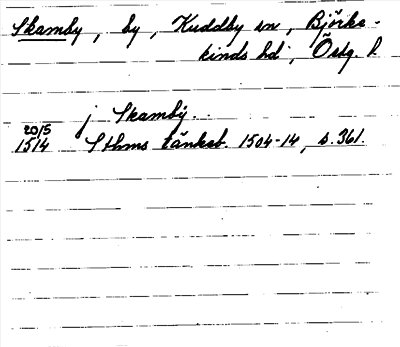 Skamby, by, Kuddby sn, Björke-
kinds hd, Östg. l.
j Skamby.
20/5
1514 Sthms tänkeb. 1504-14, s. 361.